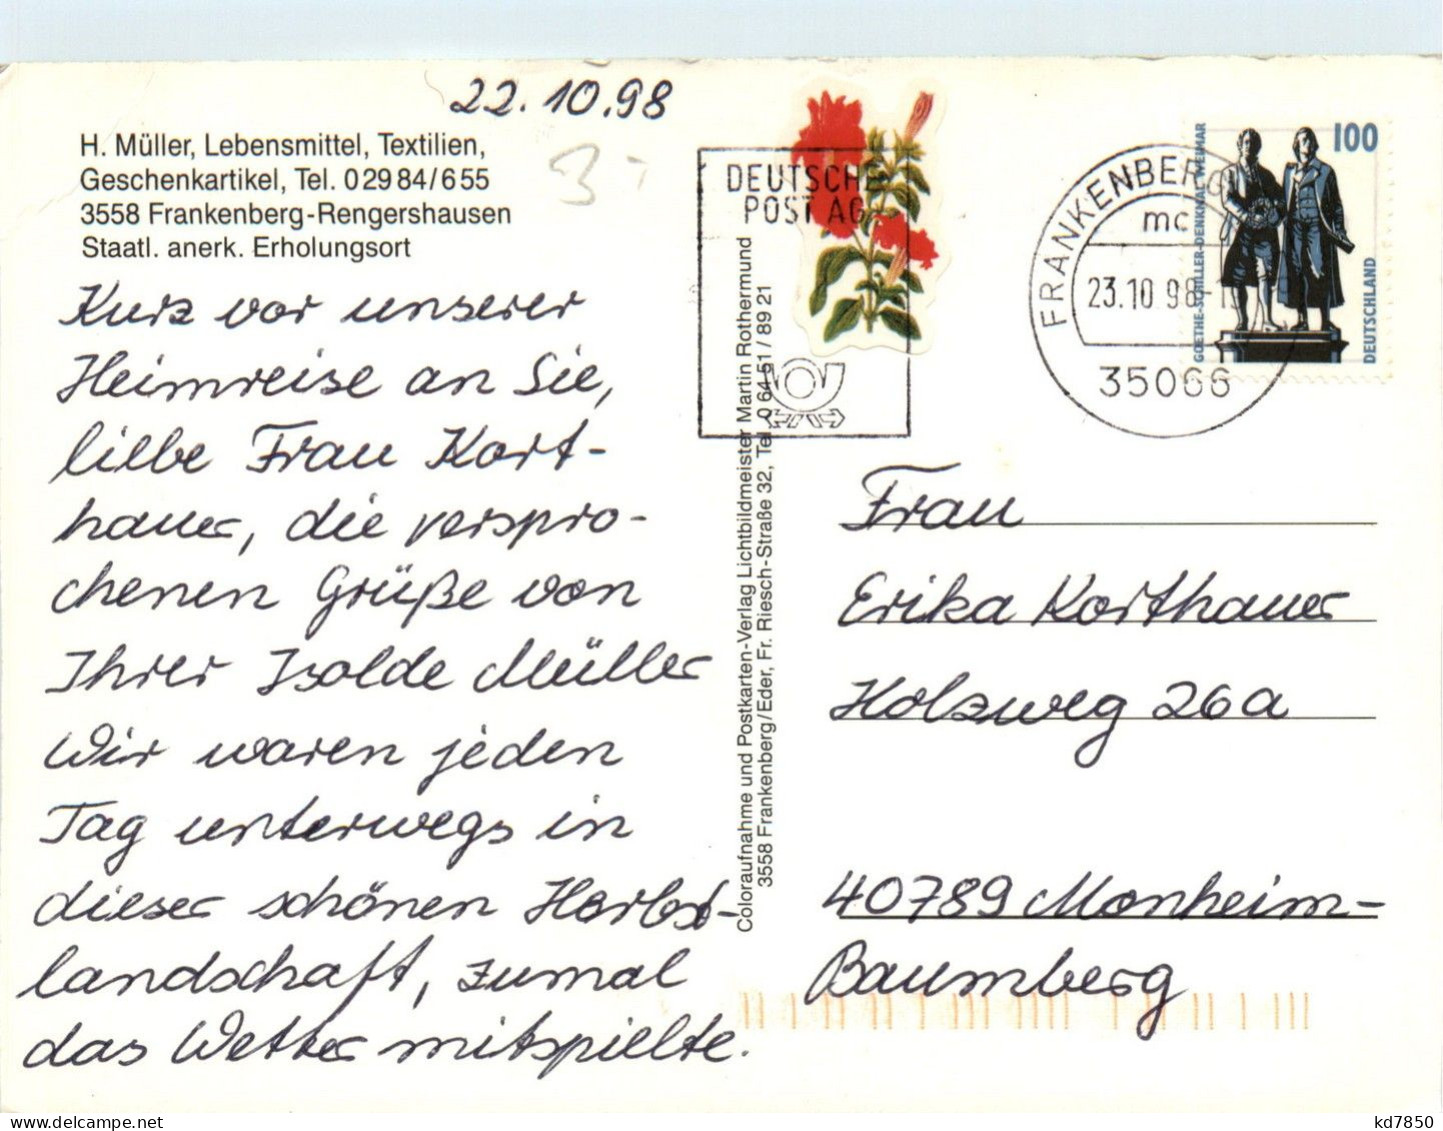 22.10.98
H. Müller, Lebensmittel, Textilien,
Geschenkartikel, Tel. 02984/655
3558 Frankenberg-Rengershausen
Staatl. anerk. Erholungsort
Kurz vor unserer
Heimreise an Sie,
liebe Frau Kort-
hauer, die verspro-
chenen Grüße von
Ihrer Isolde Müller
Wir waren jeden
Tag unterwegs in
dieser schönen Herbst-
landschaft, zumal
das Wetter mitspielte.
Coloraufnahme und Postkarten-Verlag Lichtbildmeister Martin Rothermund
3558 Frankenberg/Eder, Fr. Riesch-Straße 32, Tel. 0 64 51 / 89 21
DEUTSCHE
POST AG
FRANKENBERG
mc
23.10.98-1
35066
100
GOETHE-SCHILLER-DENKMAL WEIMAR
DEUTSCHLAND
Frau
Erika Korthauer
Holzweg 26a
40789 Monheim-
Baumberg
kd7850